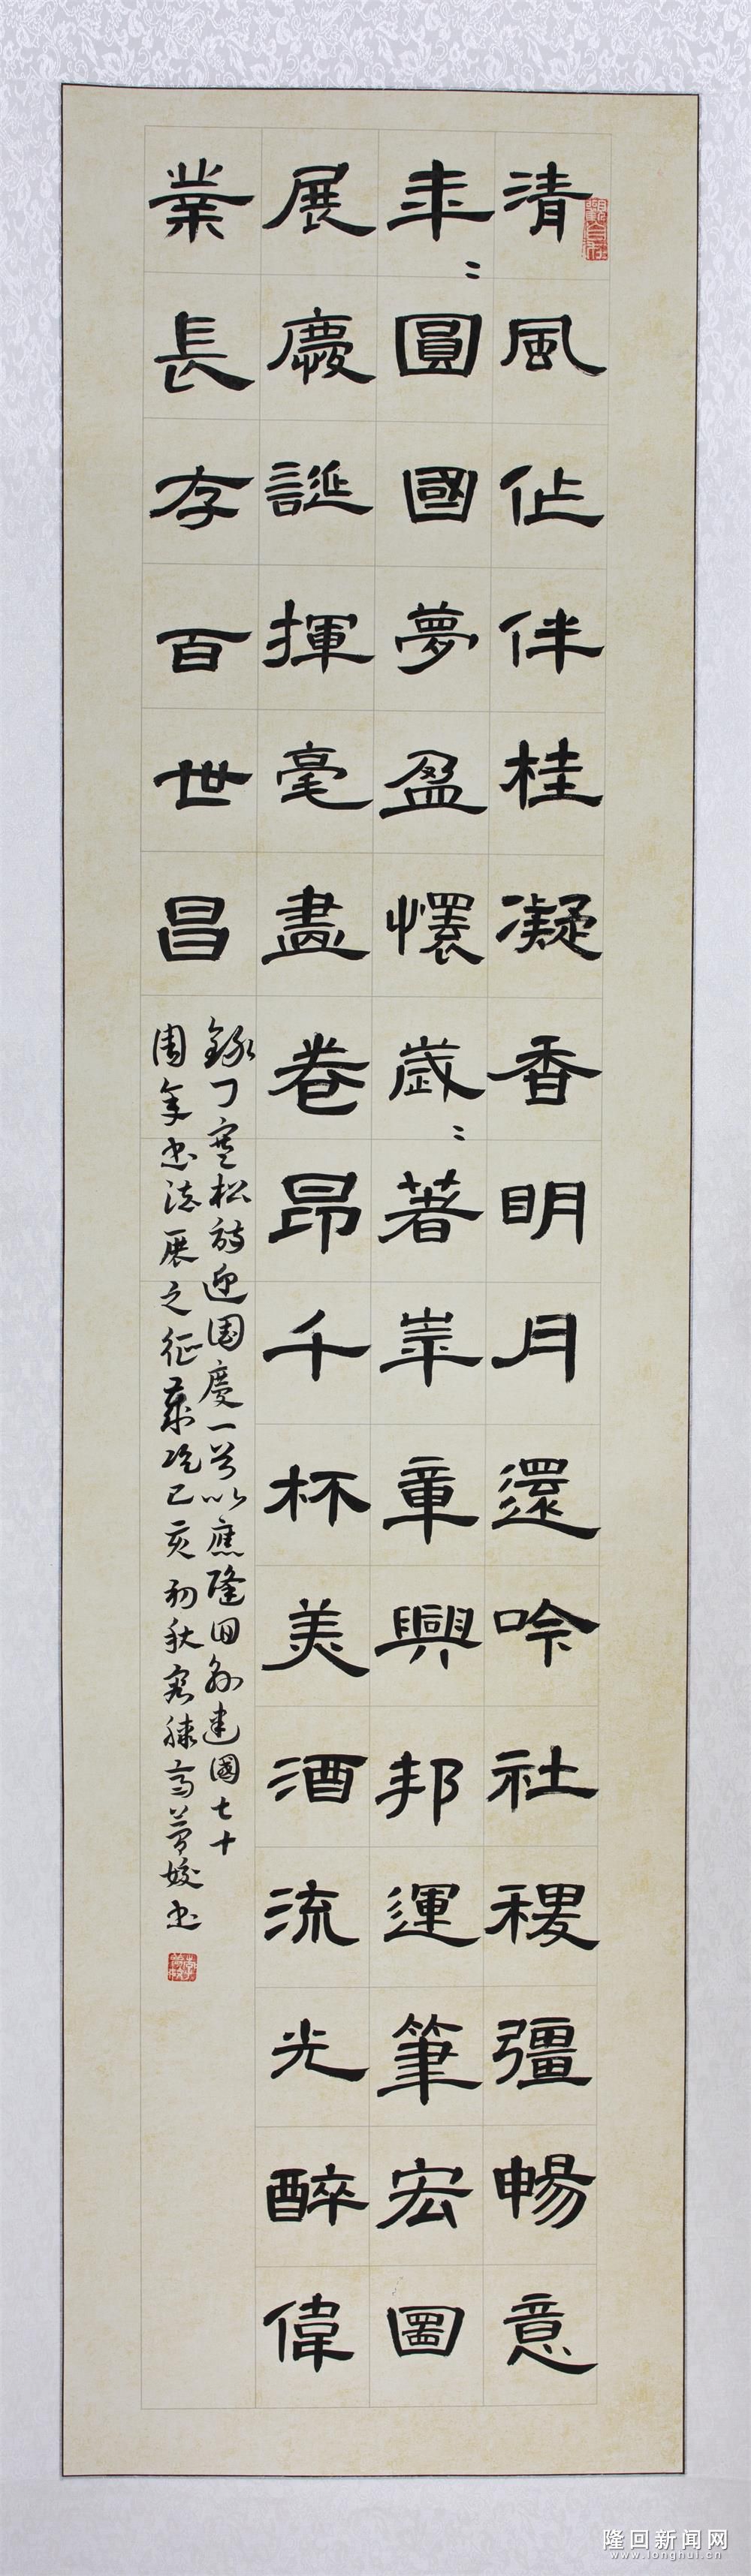 清風作伴桂凝香明月還吟社稷彊暢意
年〻圓國夢盈懷歲〻著華章興邦運筆宏圖
展慶誕揮毫盡卷昂千杯美酒流光醉偉
業長存百世昌
錄丁寒松詩迎国慶一首以應隆回縣建國七十
周年書法展之征藁 歲己亥初秋 書
隆回新闻网
www.longhui.cn